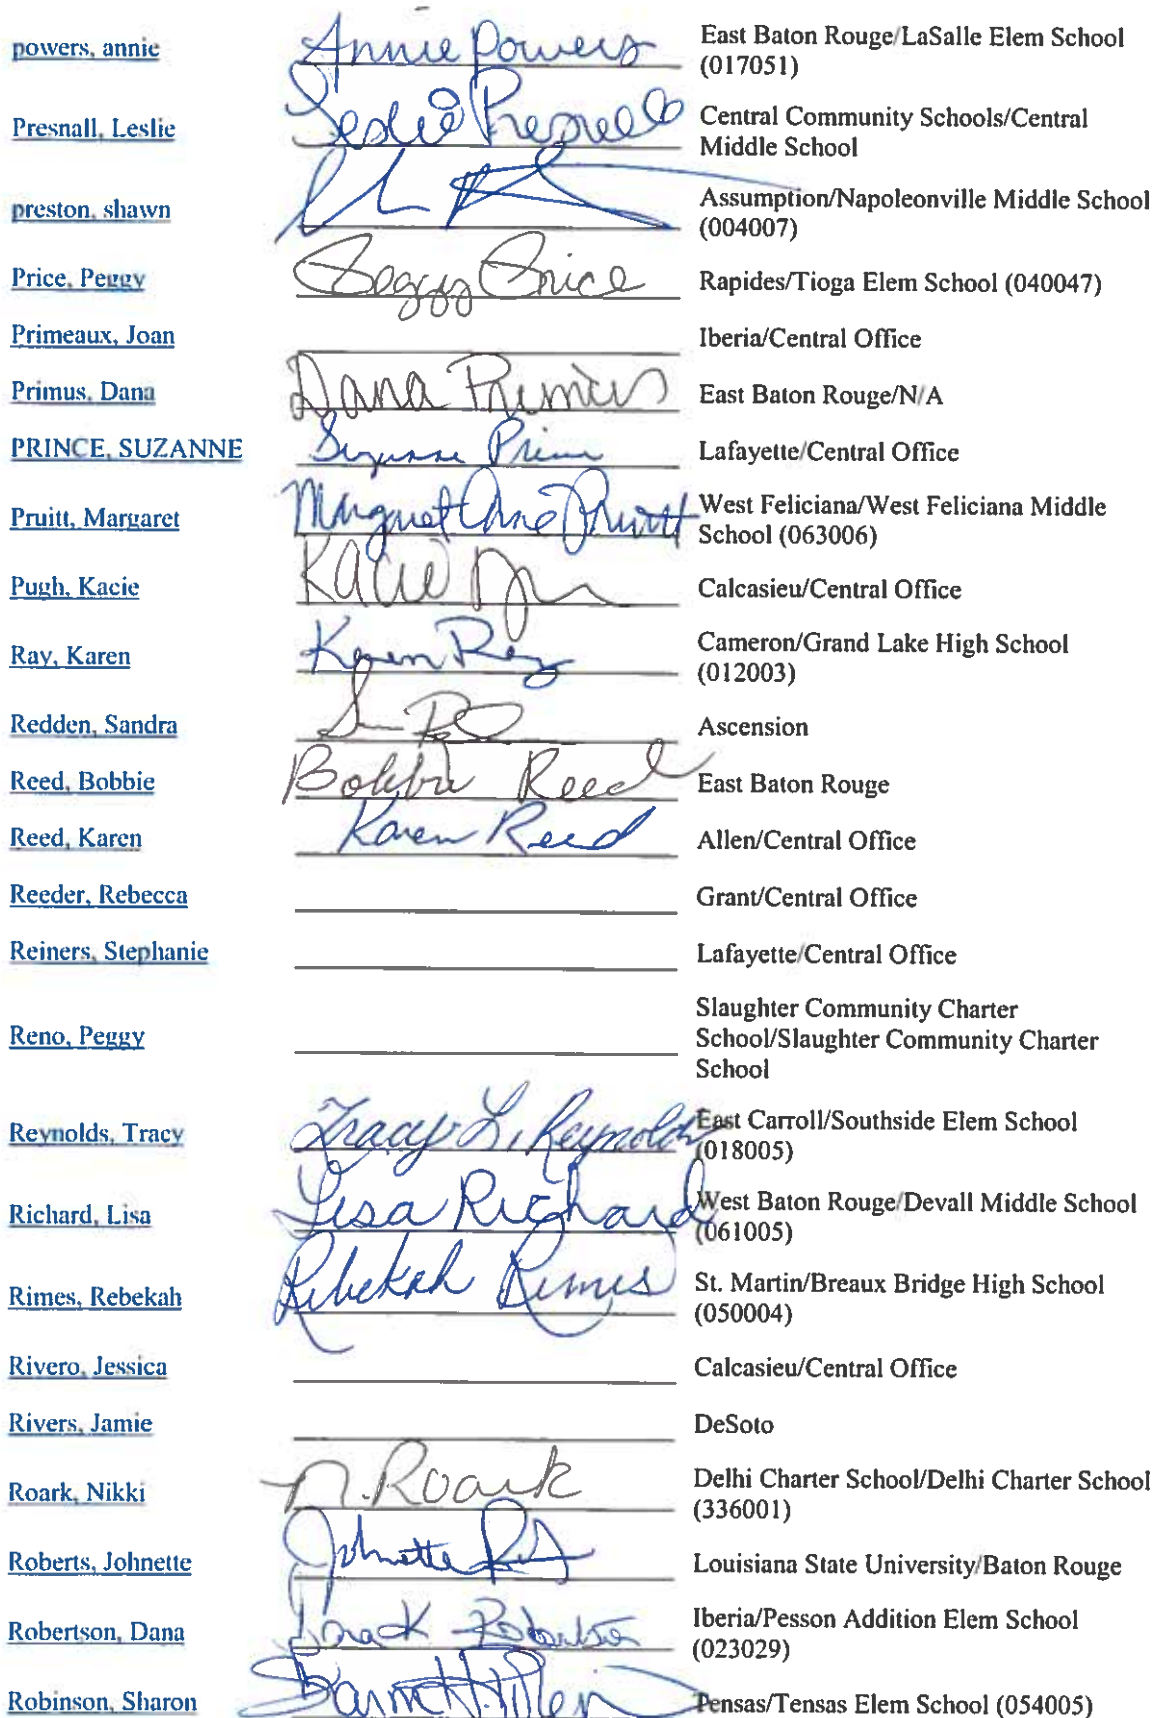 powers, annie Annie Powers East Baton Rouge/LaSalle Elem School
(017051)
Presnall, Leslie Leslie Presnell Central Community Schools/Central
Middle School
preston, shawn Assumption/Napoleonville Middle School
(004007)
Price, Peggy Peggy Price Rapides/Tioga Elem School (040047)
Primeaux, Joan Iberia/Central Office
Primus, Dana Dana Primus East Baton Rouge/N/A
PRINCE, SUZANNE Suzanne Prince Lafayette/Central Office
Pruitt, Margaret Margaret Anne Pruitt West Feliciana/West Feliciana Middle
School (063006)
Pugh, Kacie Kacie Calcasieu/Central Office
Ray, Karen Karen Ray Cameron/Grand Lake High School
(012003)
Redden, Sandra Ascension
Reed, Bobbie Bobbie Reed East Baton Rouge
Reed, Karen Karen Reed Allen/Central Office
Reeder, Rebecca Grant/Central Office
Reiners, Stephanie Lafayette/Central Office
Slaughter Community Charter
Reno, Peggy School/Slaughter Community Charter
School
Reynolds, Tracy Tracy L. Reynolds East Carroll/Southside Elem School
(018005)
Richard, Lisa Lisa Richard West Baton Rouge/Devall Middle School
(061005)
Rimes, Rebekah Rebekah Rimes St. Martin/Breaux Bridge High School
(050004)
Rivero, Jessica Calcasieu/Central Office
Rivers, Jamie DeSoto
Roark, Nikki N. Roark Delhi Charter School/Delhi Charter School
(336001)
Roberts, Johnette Johnette Louisiana State University/Baton Rouge
Robertson, Dana Dana K Robertson Iberia/Pesson Addition Elem School
(023029)
Robinson, Sharon Tensas/Tensas Elem School (054005)